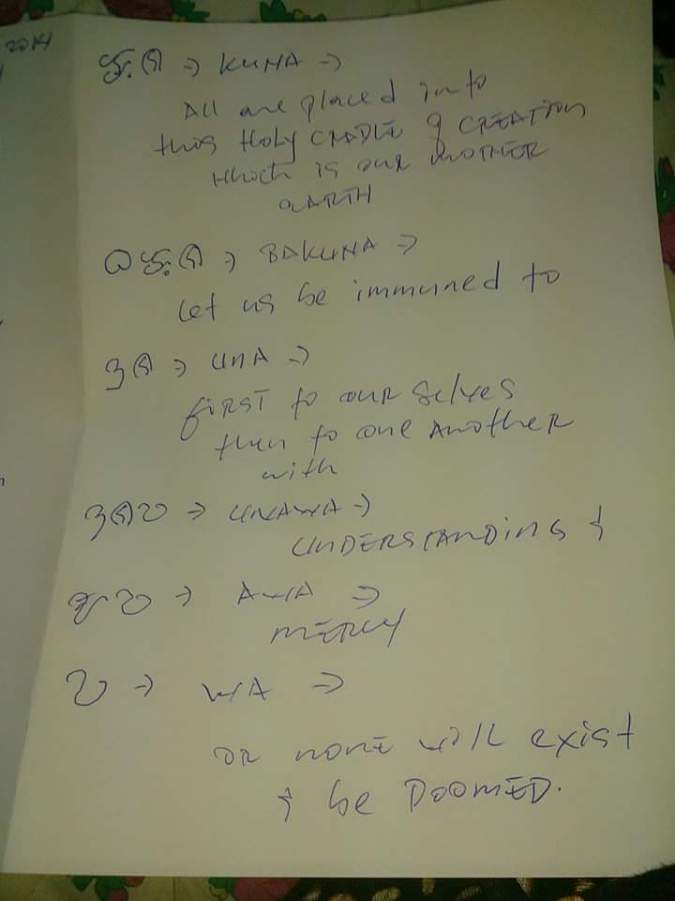 2014
ᜃᜓᜈ → KUNA →
All are placed into
this Holy CRADLE of CREATION
which is our MOTHER
EARTH
ᜊᜃᜓᜈ → BAKUNA →
Let us be immuned to
ᜂᜈ → UNA →
FIRST to OUR Selves
then to one ANOTHER
with
ᜂᜈᜏ → UNAWA →
UNDERSTANDING &
ᜀᜏ → AWA →
MERCY
ᜏ → WA →
OR NONE will exist
& be DOOMED.